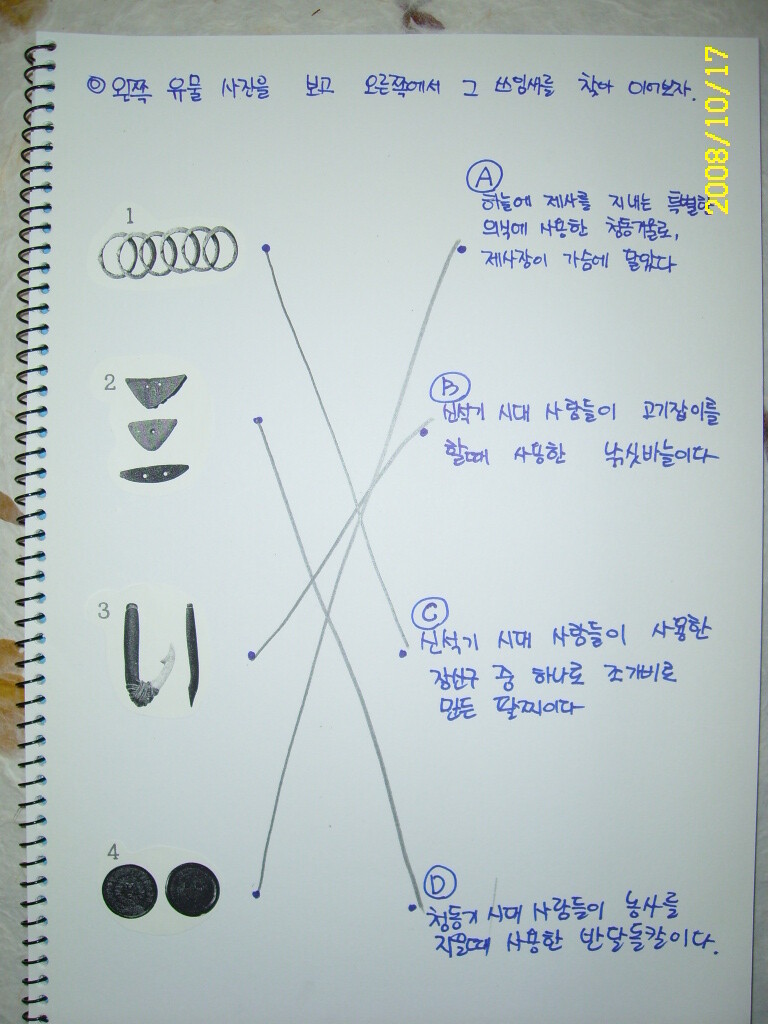 ◎ 왼쪽 유물 사진을 보고 오른쪽에서 그 쓰임새를 찾아 이어보자.
2008/10/17
1
Ⓐ
하늘에 제사를 지내는 특별한
의식에 사용한 청동거울로,
제사장이 가슴에 달았다
2
Ⓑ
신석기 시대 사람들이 고기잡이를
할때 사용한 낚싯바늘이다
3
Ⓒ
신석기 시대 사람들이 사용한
장신구 중 하나로 조개비로
만든 팔찌이다
4
Ⓓ
청동기 시대 사람들이 농사를
지을때 사용한 반달돌칼이다.